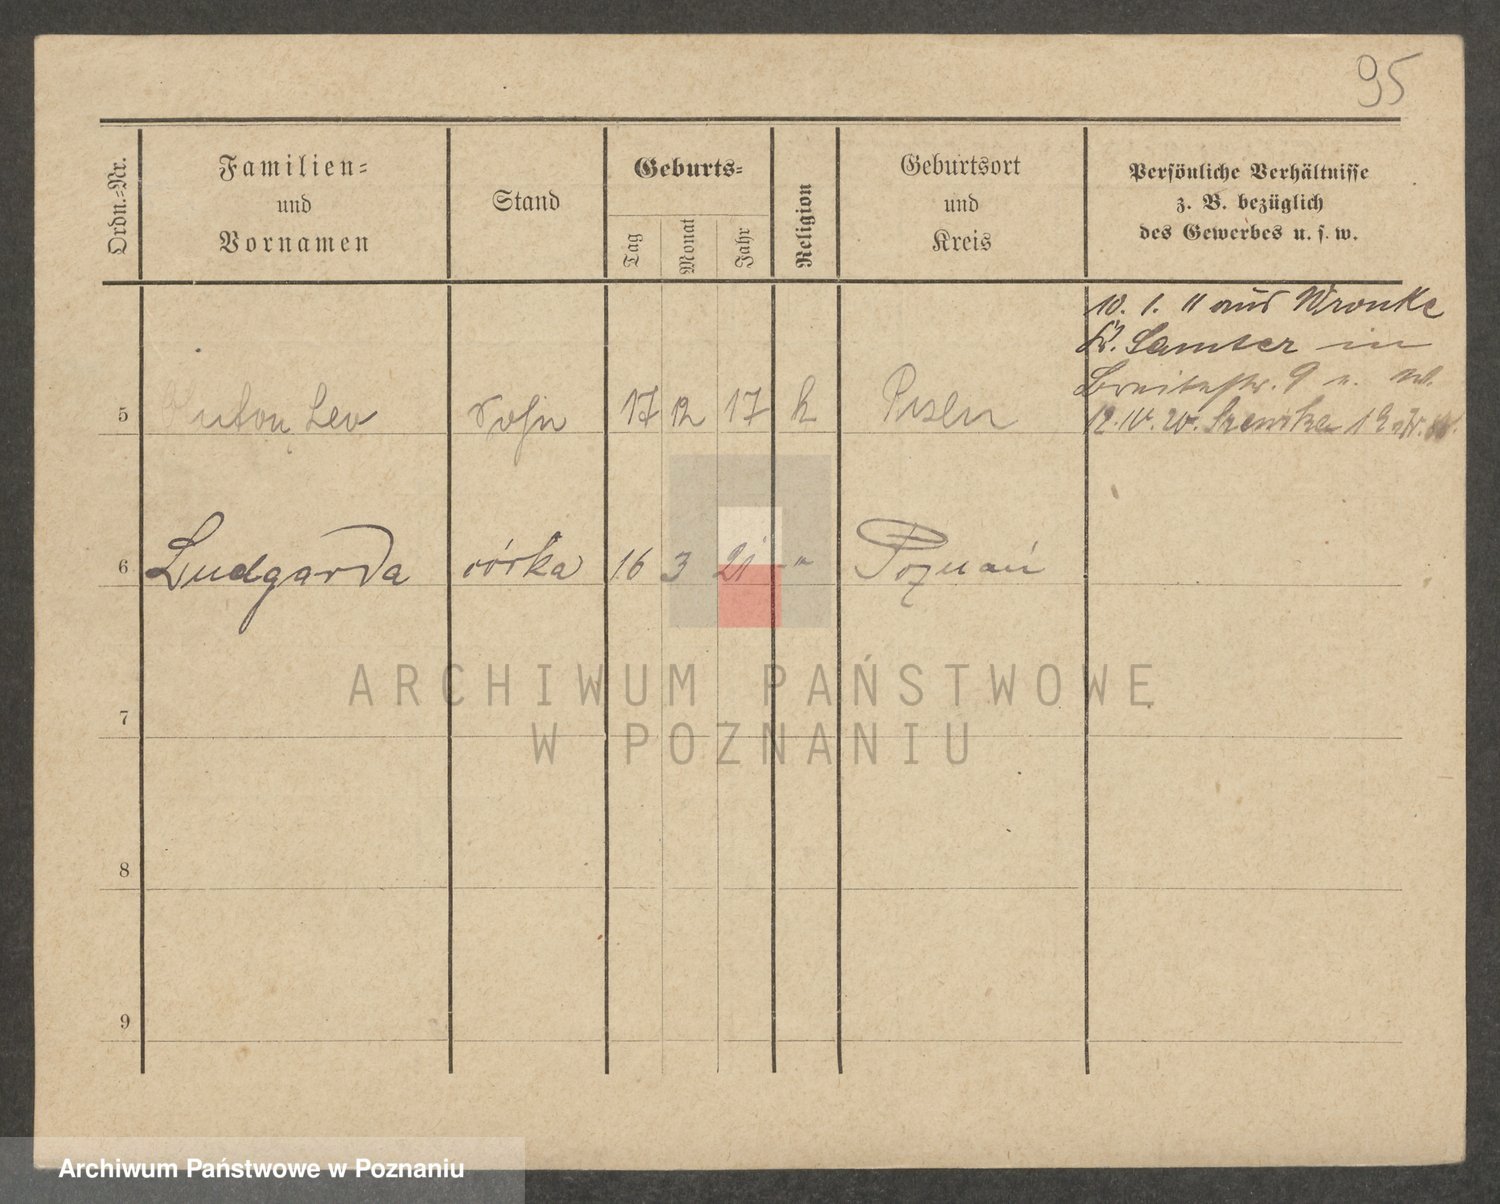 95
Ordn.-Nr.
Familien-
und
Vornamen
Stand
Geburts-
Tag
Monat
Jahr
Religion
Geburtsort
und
Kreis
Persönliche Verhältnisse
z. B. bezüglich
des Gewerbes u. s. w.
10. 1. 11 aus Wronke
Kr. Samter in
Breitestr. 9
5 Anton Leo Sohn 17 12 17 k Posen
6 Ludgarda córka 16 3 21 -"- Poznań
7
8
9
ARCHIWUM PAŃSTWOWE
W POZNANIU
Archiwum Państwowe w Poznaniu